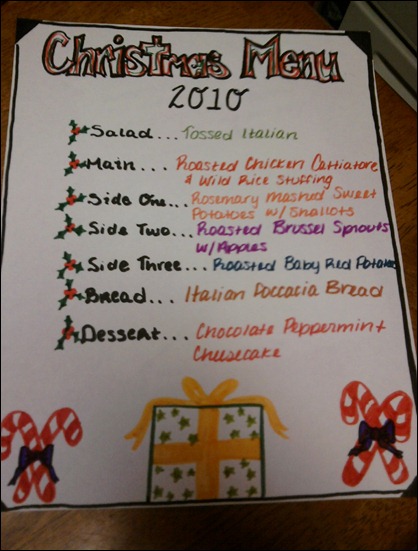 Christmas Menu
2010
Salad... Tossed Italian
Main... Roasted Chicken Cattiatore
& Wild Rice Stuffing
Side One... Rosemary Mashed Sweet
Potatoes w/ Shallots
Side Two... Roasted Brussel Sprouts
w/Apples
Side Three... Roasted Baby Red Potatoes
Bread... Italian Foccacia Bread
Dessert... Chocolate Peppermint
Cheesecake